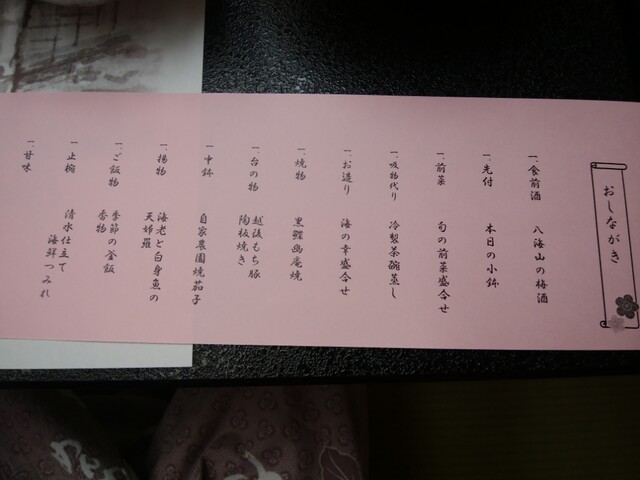 おしながき
一、食前酒 八海山の梅酒
一、先付 本日の小鉢
一、前菜 旬の前菜盛合せ
一、吸物代り 冷製茶碗蒸し
一、お造り 海の幸盛合せ
一、焼物 黒鰹幽庵焼
一、台の物 越後もち豚
陶板焼き
一、中鉢 自家農園焼茄子
一、揚物 海老と白身魚の
天婦羅
一、ご飯物 季節の釜飯
香物
一、止椀 清水仕立て
海鮮つみれ
一、甘味